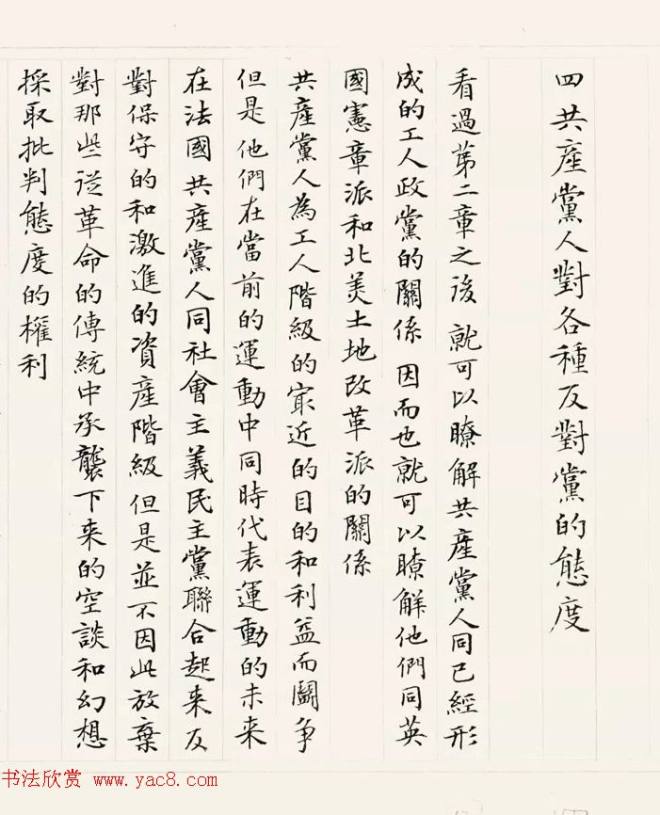 四共產黨人對各種反對黨的態度
看過第二章之後 就可以瞭解共產黨人同已經形
成的工人政黨的關係 因而也就可以瞭解他們同英
國憲章派和北美土地改革派的關係
共產黨人為工人階級的最近的目的和利益而鬪争
但是 他們在當前的運動中同時代表運動的未来
在法國 共產黨人同社會主義民主黨聯合起来反
對保守的和激進的資產階級 但是並不因此放棄
對那些從革命的傳統中承襲下来的空談和幻想
採取批判態度的權利
书法欣赏 www.yac8.com